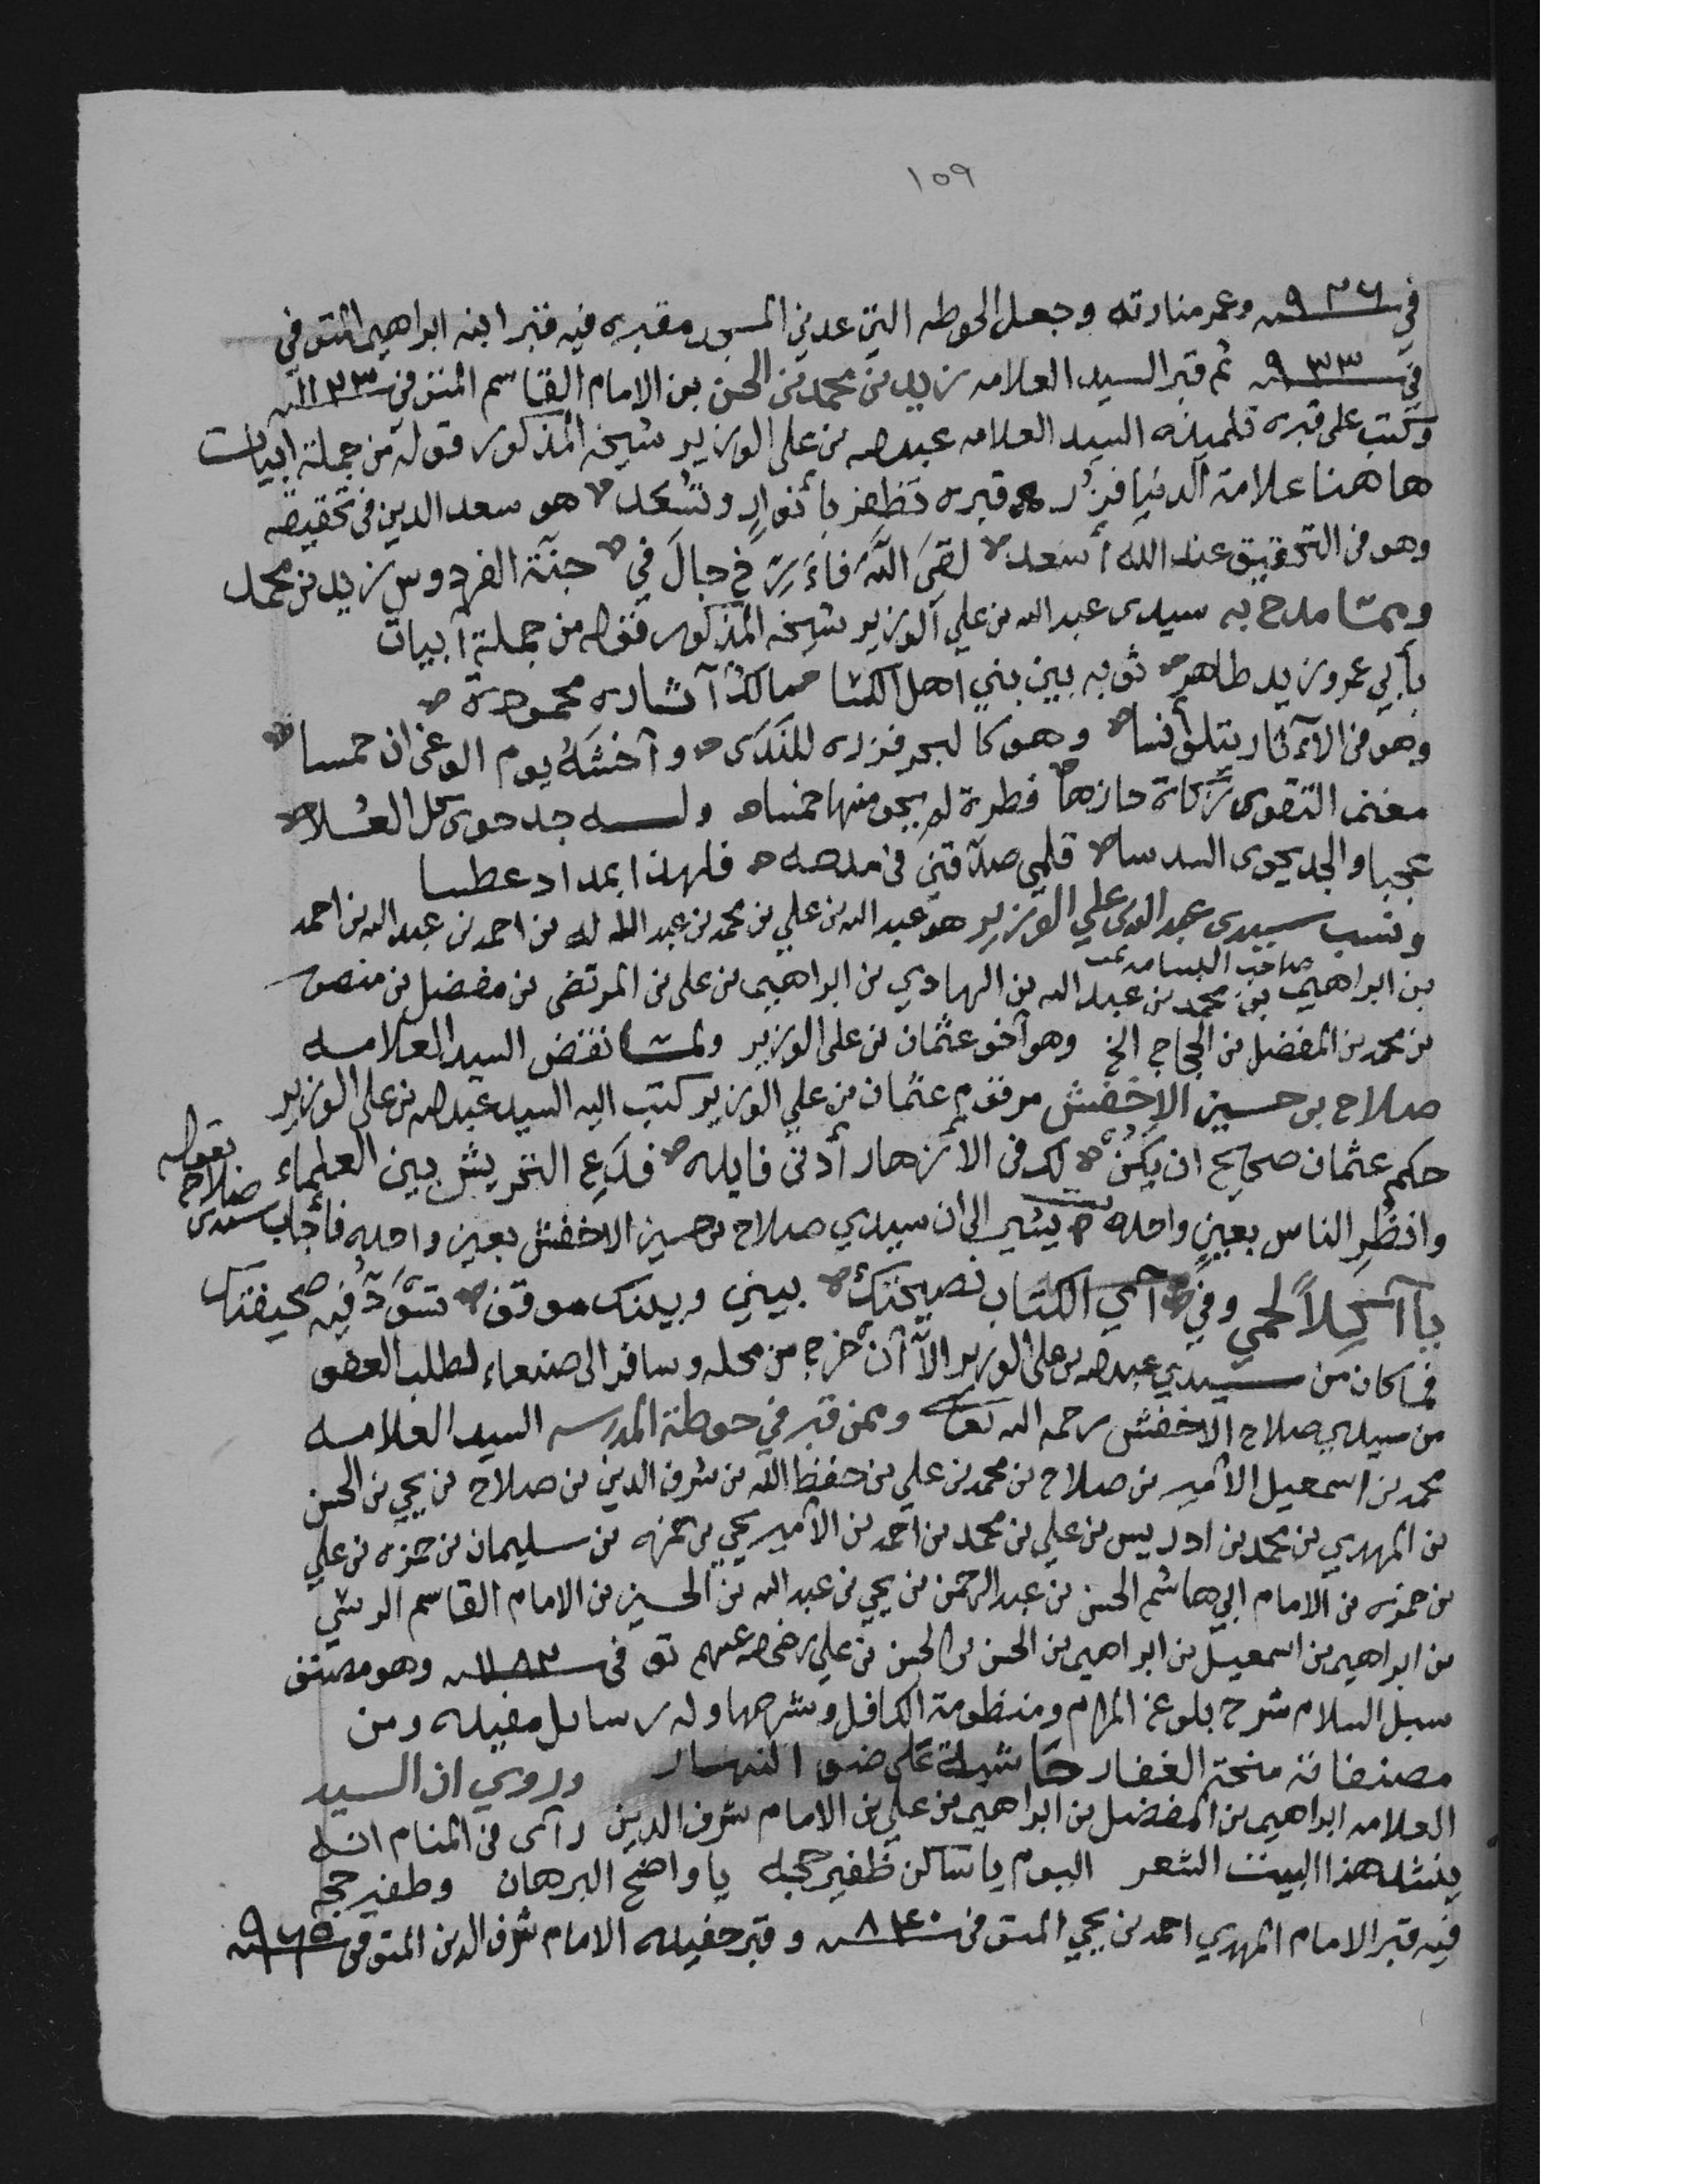 ١٥٩
في سنة ٩٣٦ وعمر منارته وجعل الحوطه التي عدني المسجد مقبره فيه قبر ابنه ابراهيم المتوفي
في سنة ٩٣٣ ثم قبر السيد العلامه زيد بن محمد بن الحسن بن الامام القاسم المتوفى سنة ١١٢٣
وكتب على قبره تلميذه السيد العلامه عبدالله بن علي الوزير شيخه المذكور قوله من جملة ابيات
هاهنا علامة الدنيا فزُر قبره تظفر بأنوارٍ وتسعد هو سعد الدين في تحقيقه
وهو في التحقيق عند الله أسعد لقي الله فأرخ جال في جنة الفردوس زيد بن محمد
ومما مدح به سيدي عبد الله بن علي الوزير شيخه المذكور فقوله من جملة أبيات
بأبي عمرو زيد طاهر ثوبه بين بني اهل الكسا مالك آثاره محمودة
وهو في الآثار يتلو أنسا وهو كالبحر فزره للندى وآخشه يوم الوغى ان حمسا
مغنم التقوى زكاة حازها فطرة لم يبق منها خمسا وله جد حوى كل العُلا
عجبا والجد يحوى السدسا قلمي صدقني في مدحه فلهذا بمداد عطسا
ونسب سيدي عبد الله بن علي الوزير هو عبد الله بن علي بن محمد بن عبد الله بن احمد بن عبد الله بن احمد
صاحب البسامه
بن ابراهيم بن محمد بن عبد الله بن الهادي بن ابراهيم بن علي بن المرتضى بن مفضل بن منصور
بن محمد بن المفضل بن الحجاج الخ وهو آخو عثمان بن علي الوزير ولما نقض السيد العلامه
صلاح بن حسين الاخفش مرقوم عثمان بن علي الوزير كتب اليه السيد عبدالله بن علي الوزير
بقوله
حكم عثمان صحيح ان يكن لك في الأزهار أدنى فايده فدع التحريش بين العلماء
وانظُر الناس بعينٍ واحده يشير الى ان سيدي صلاح بن حسين الاخفش بعين واحده فأجاب سيدي
صلاح
يا آكلاً لحمي وفي آي الكتاب نصيحتك بيني وبينك موقف تسوَدّ فيه صحيفتك
فما كان من سيدي عبدالله بن علي الوزير الا آن خرج من محله وسافر الى صنعاء لطلب العفو
من سيدي صلاح الاخفش رحمه الله تعالى وممن قبر في حوطة المدرسه السيد العلامه
محمد بن اسمعيل الأمير بن صلاح بن محمد بن علي بن حفظ الله بن شرف الدين بن صلاح بن يحيى بن الحسن
بن المهدي بن محمد بن ادريس بن علي بن محمد بن احمد بن الأمير يحيى بن حمزه بن سليمان بن حمزه بن علي
بن حمزه بن الامام ابي هاشم الحسن بن عبد الرحمن بن يحيى بن عبد الله بن الحسين بن الامام القاسم الرسي
بن ابراهيم بن اسمعيل بن ابراهيم بن الحسن بن الحسن بن علي رضي الله عنهم توفى سنة ١١٨٢ وهو مصنف
سبل السلام شرح بلوغ المرام ومنظومة الكافل وشرحها وله رسايل مفيده ومن
مصنفاته منحة الغفار حاشية على ضوء النهار وروي ان السيد
العلامه ابراهيم بن المفضل بن ابراهيم بن علي بن الامام شرف الدين رآى في المنام انه
ينشد هذا البيت الشعر اليوم يا ساكن ظفير حجه يا واضح البرهان وظفير حجه
فيه قبر الامام المهدي احمد بن يحيى المتوفى سنة ٨٤٠ وقبر حفيده الامام شرف الدين المتوفى سنة ٩٦٥